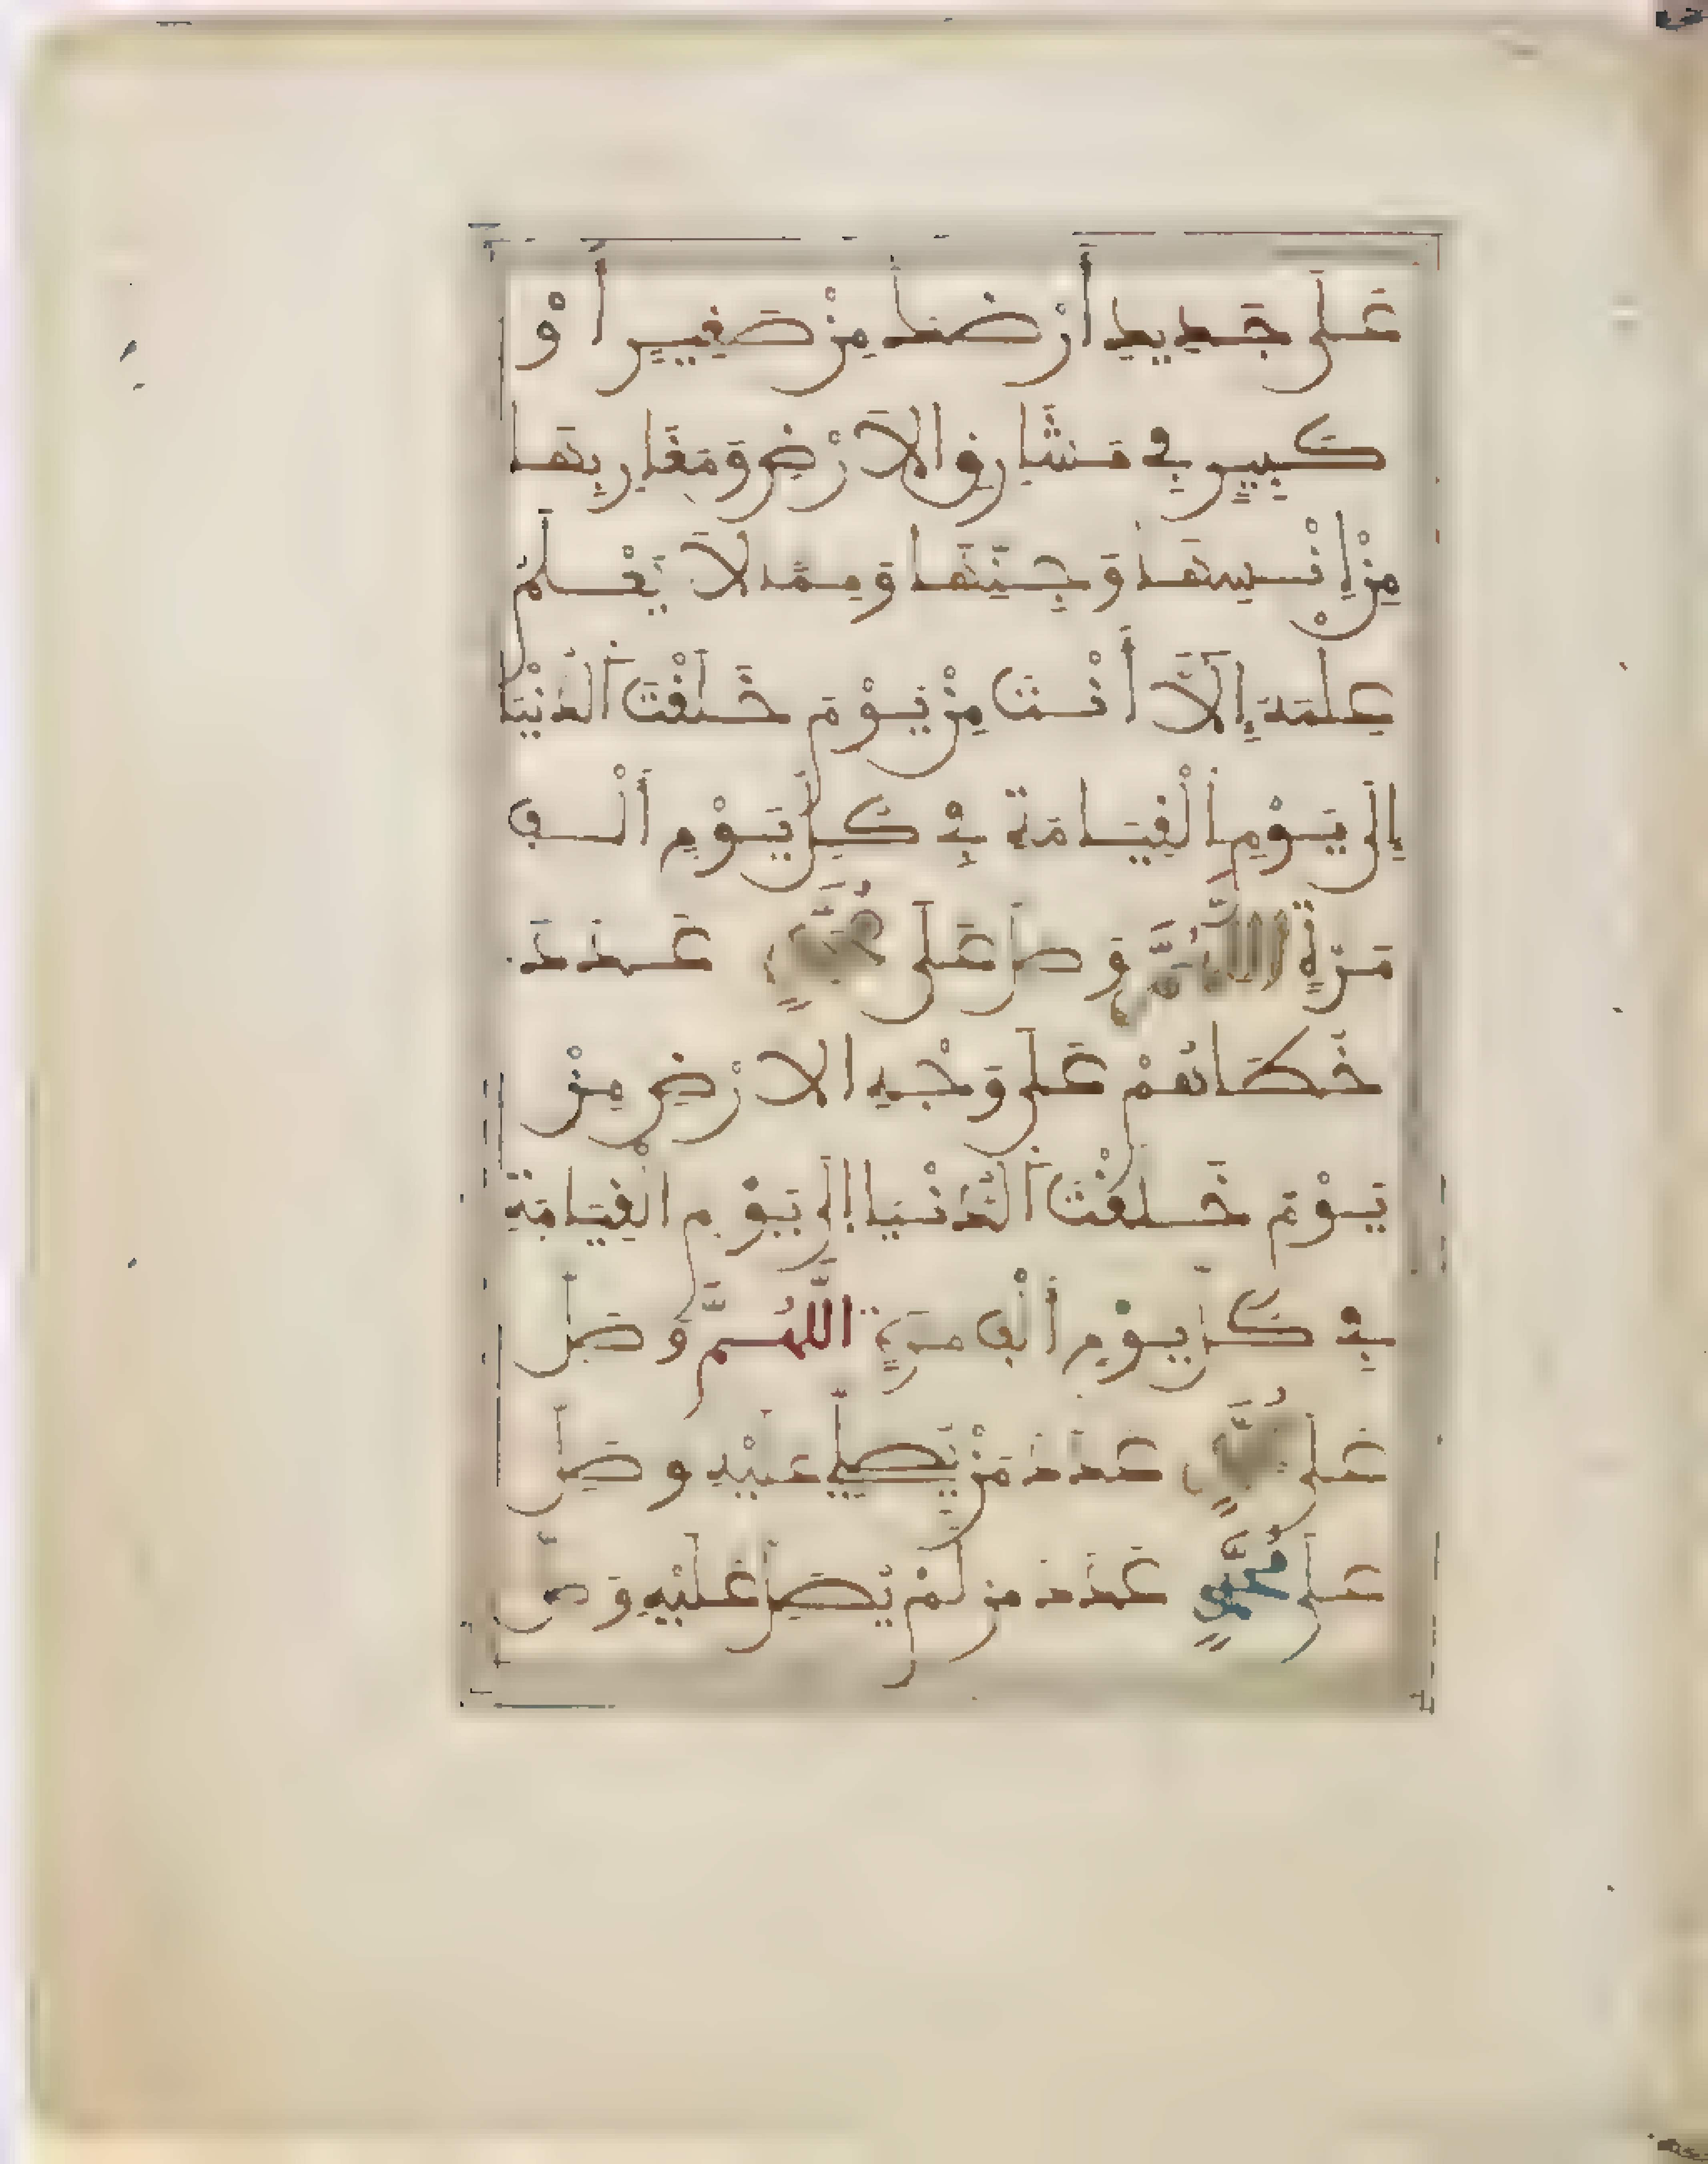 عَلَى جَدِيدِ أَرْضِكَ مِنْ صَغِيرٍ أَوْ
كَبِيرٍ فِي مَشَارِقِ الاَرْضِ وَمَغَارِبِهَا
مِنْ إِنْسِهَا وَجِنِّهَا وَمِمَّا لاَ يَعْلَمُ
عِلْمَهُ إِلاَّ أَنْتَ مِنْ يَوْمَ خَلَقْتَ الدُّنْيَا
إِلَى يَوْمِ الْقِيَامَةِ فِي كُلِّ يَوْمٍ أَلْفَ
مَرَّةٍ اللَّهُمَّ وَصَلِّ عَلَى مُحَمَّدٍ عَدَدَ
خُطَاهُمْ عَلَى وَجْهِ الاَرْضِ مِنْ
يَوْمَ خَلَقْتَ الدُّنْيَا إِلَى يَوْمِ الْقِيَامَةِ
فِي كُلِّ يَوْمٍ أَلْفَ مَرَّةٍ اللَّهُمَّ وَصَلِّ
عَلَى مُحَمَّدٍ عَدَدَ مَنْ يُصَلِّي عَلَيْهِ وَصَلِّ
عَلَى مُحَمَّدٍ عَدَدَ مَنْ لَمْ يُصَلِّ عَلَيْهِ وَصَلِّ